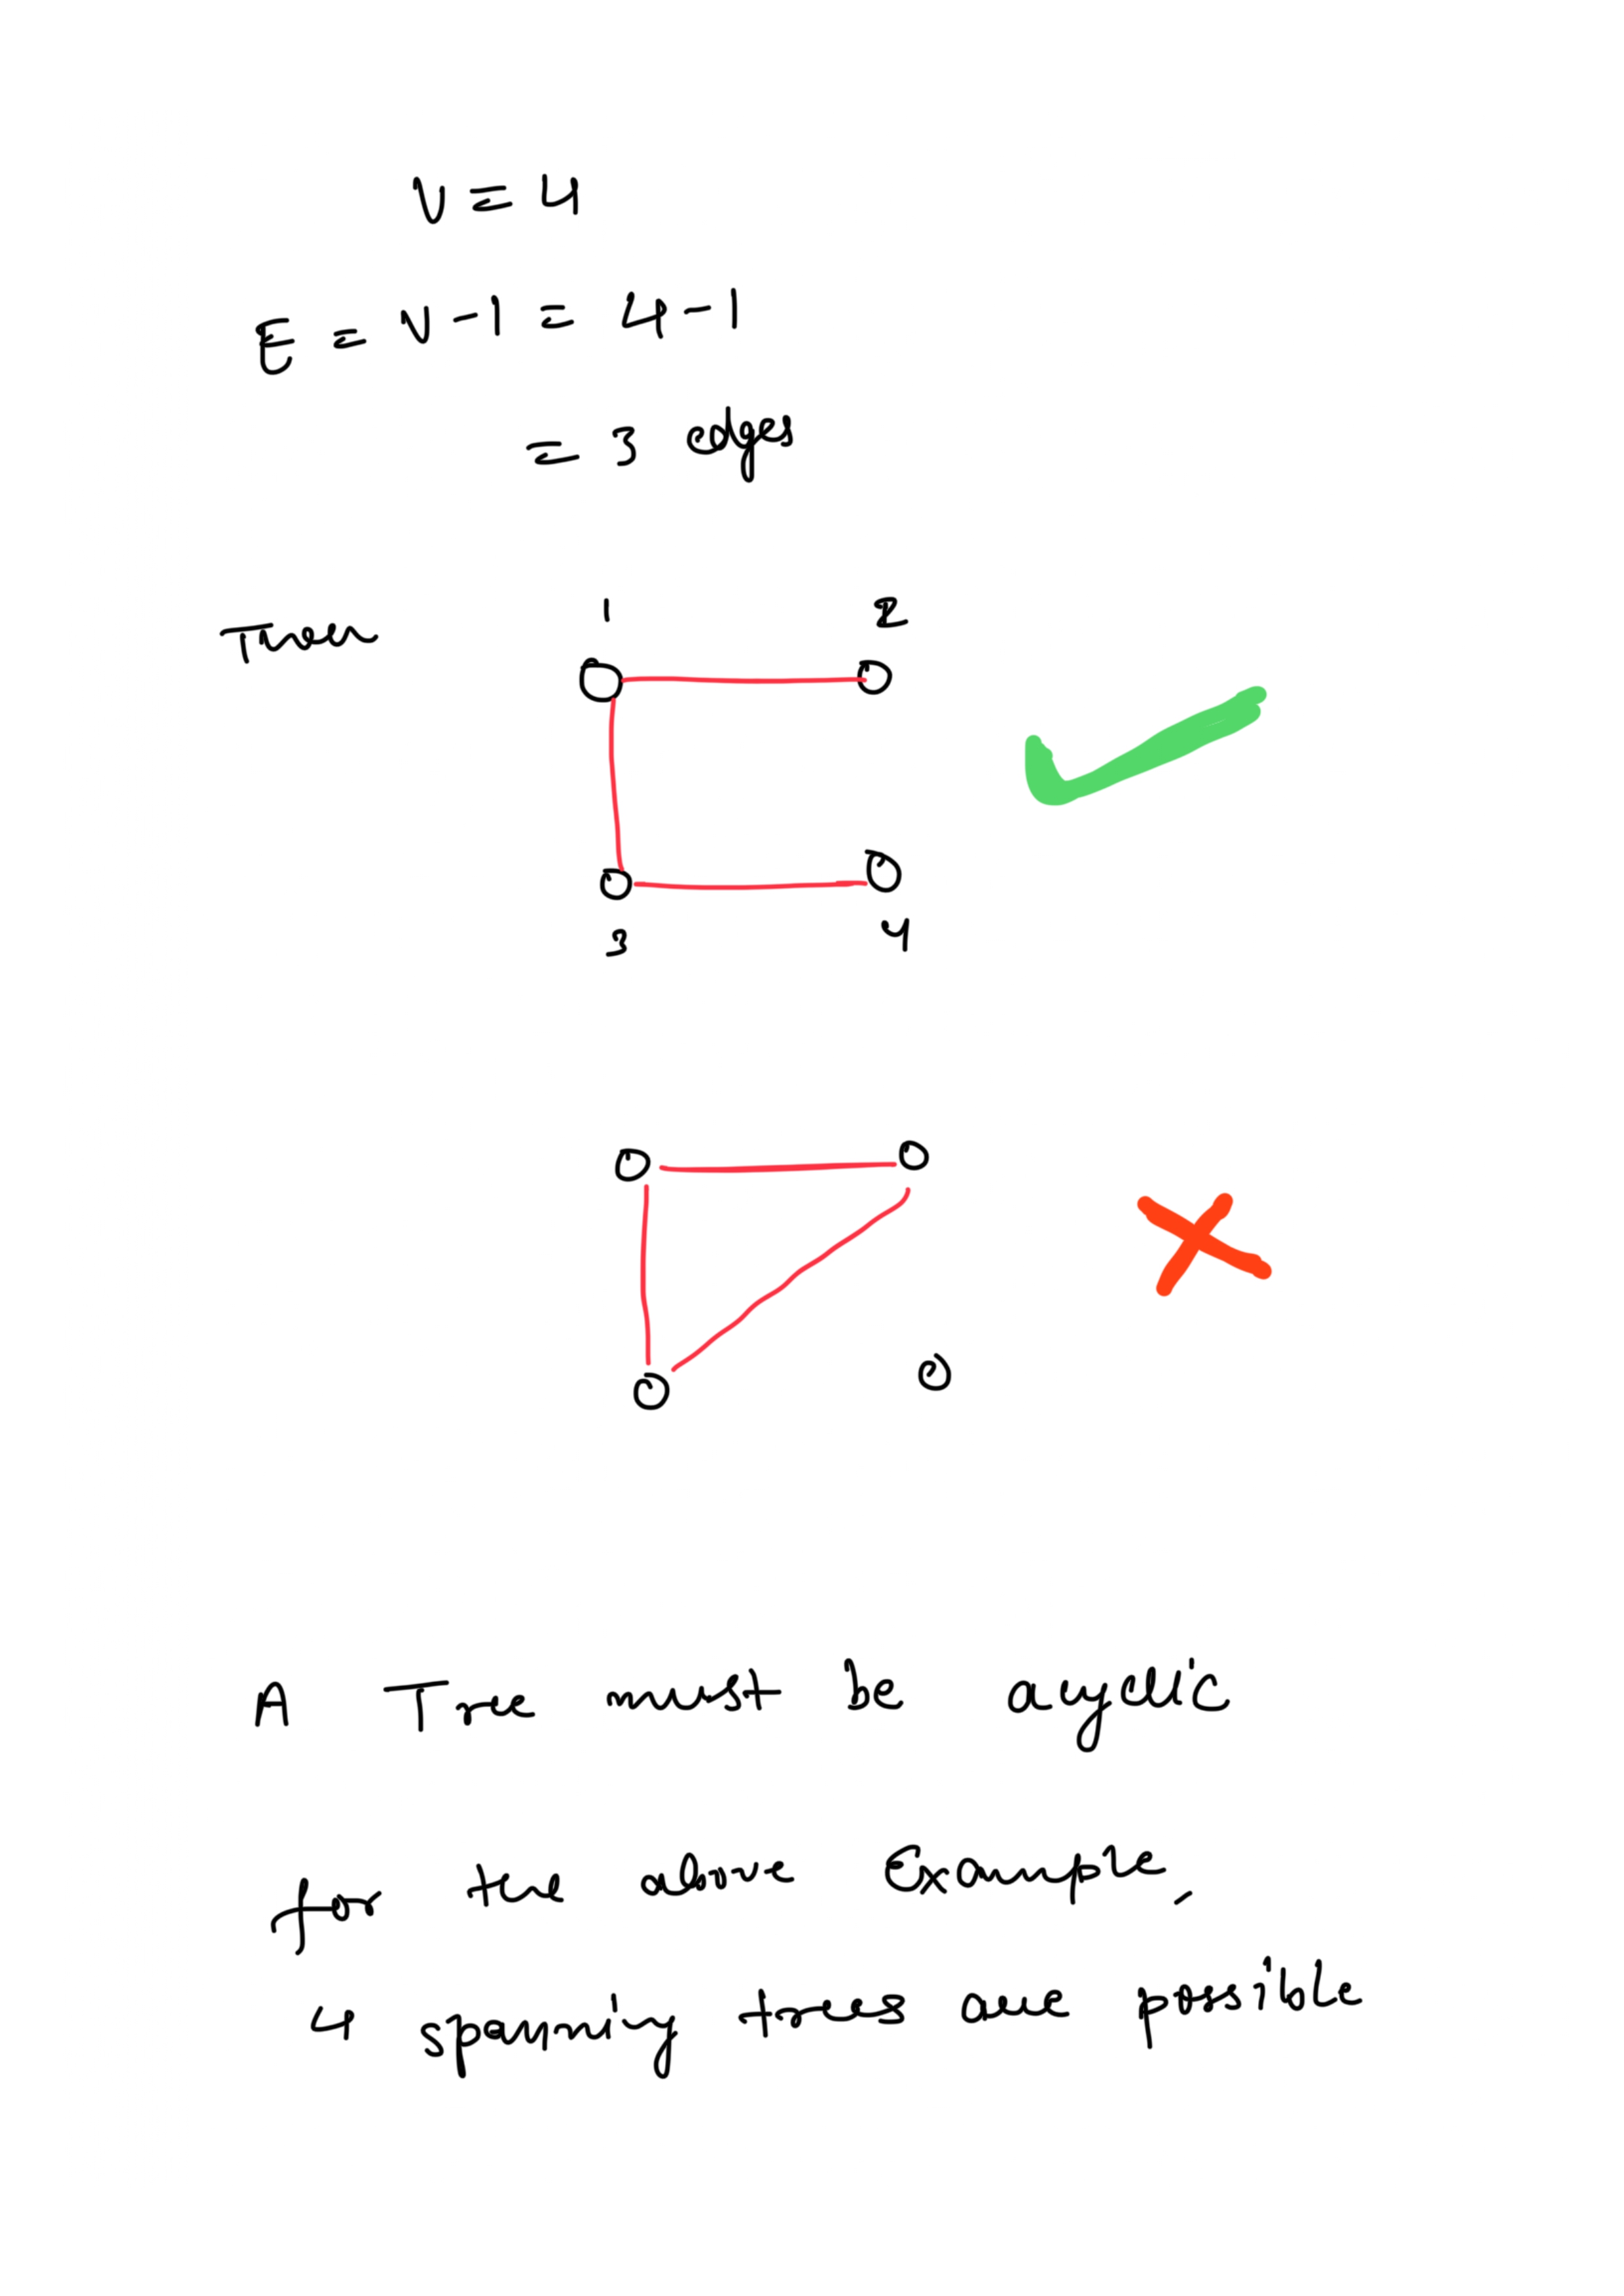 V = 4
E = V - 1 = 4 - 1
= 3 edges
Then
1 2
3 4
A Tree must be acyclic
for the above Example,
4 spanning trees are possible